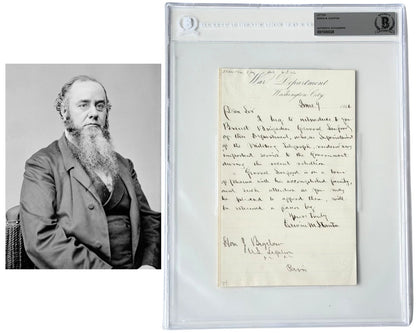 BECKETT
War Department
Washington City
June 9
Dear Sir
I beg to introduce to you
Brevet Brigadier General
of this Department, who, as Superintendent
of the Military Telegraph, rendered very
important service to the Government
during the recent rebellion
General is on a tour
of pleasure with his accomplished family,
and such attention as you may
be pleased to afford them, will
be esteemed a favor by,
Yours truly
Edwin M Stanton
Hon J Bigelow
U.S. Legation
Paris